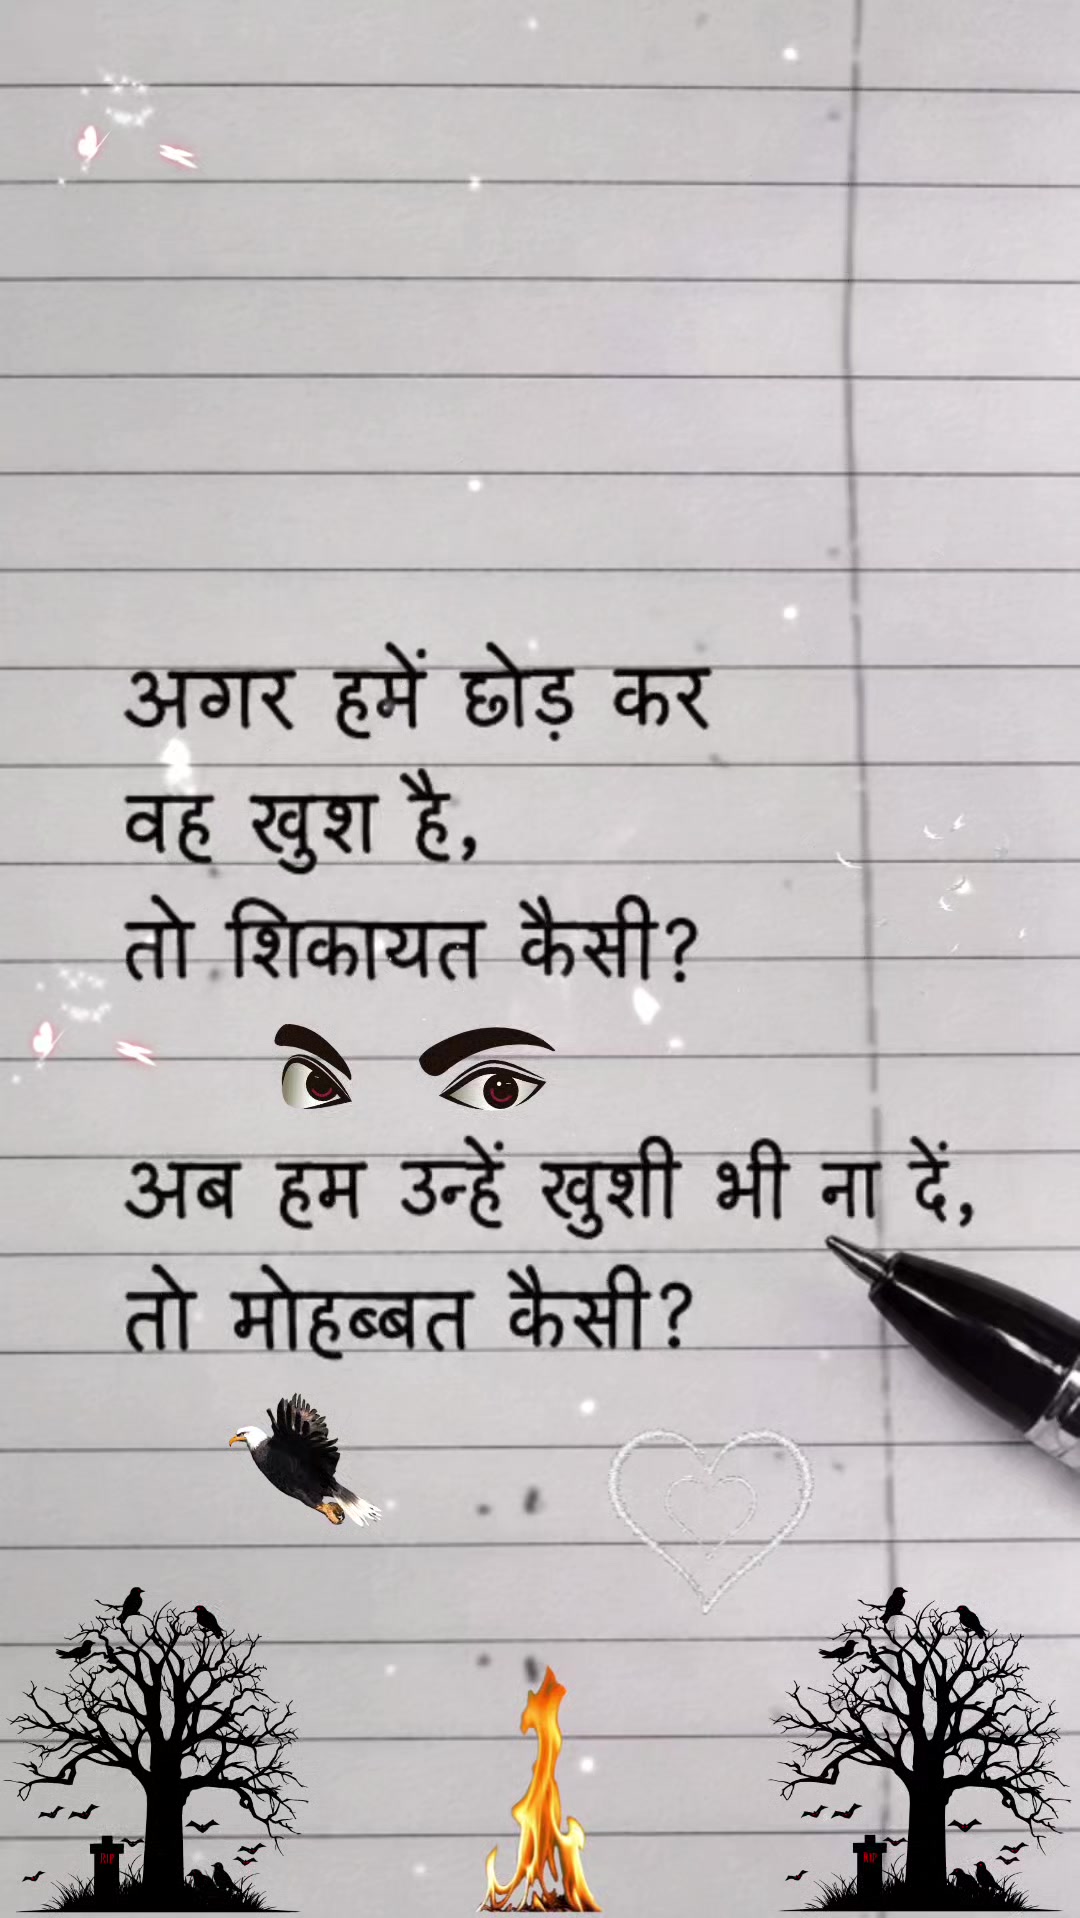 अगर हमें छोड़ कर
वह खुश है,
तो शिकायत कैसी?
अब हम उन्हें खुशी भी ना दें,
तो मोहब्बत कैसी?
RIP
RIP